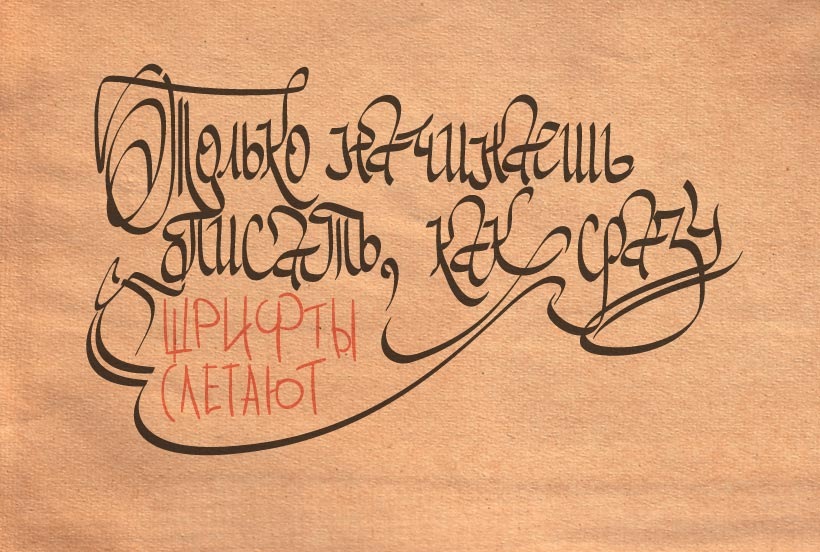 Только начинаешь
писать, как сразу
ШРИФТЫ
СЛЕТАЮТ